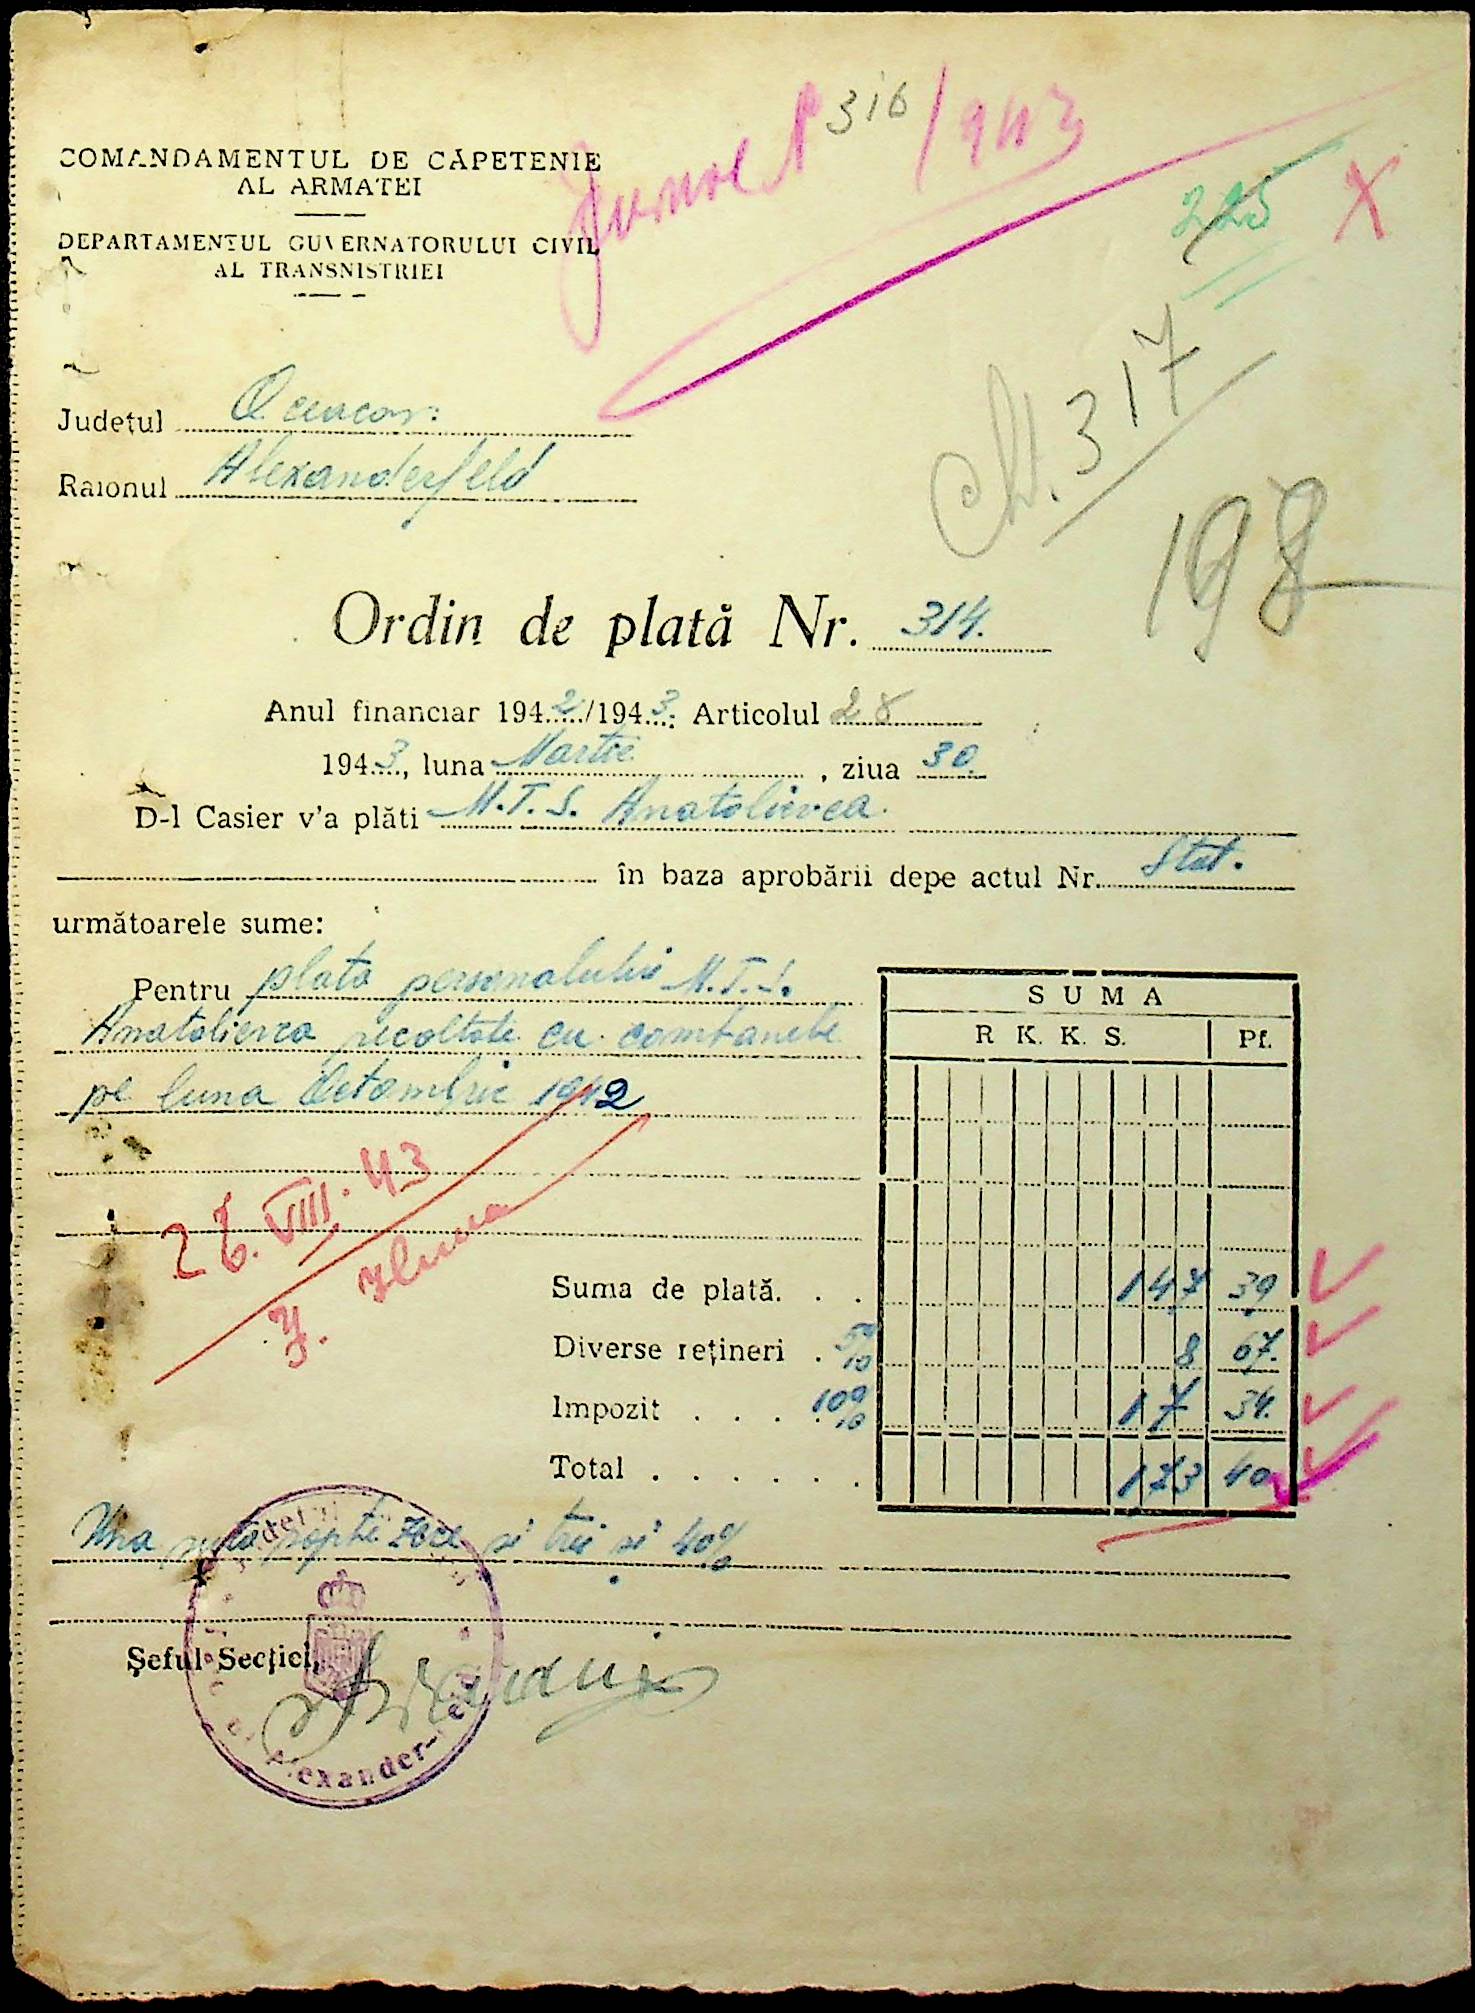 Jurnal № 316/1943
COMANDAMENTUL DE CĂPETENIE
AL ARMATEI
DEPARTAMENTUL GUVERNATORULUI CIVIL
AL TRANSNISTRIEI
225 X
Ch. 317
198
Județul Oceacov:
Raionul Alexanderfeld
Ordin de plată Nr. 314.
Anul financiar 1942/1943: Articolul 28
1943, luna Martie , ziua 30.
D-l Casier v'a plăti M.T.S. Anatolievca.
în baza aprobării depe actul Nr. Stat.
următoarele sume:
Pentru plata personalului M.T.S.
Anatolievca recoltate cu combanele
pe luna Octombrie 1942
SUMA
R K. K. S. Pf.
26.VIII.43
Suma de plată. . . 147 39
Diverse rețineri . 5% 8 67.
Impozit . . . . 10% 17 34.
Total . . . . . . 173 40
Una suta șapte zece si trei si 40%
Șeful Secției,
Alexander-